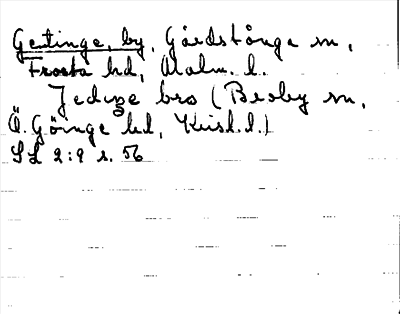 Gertinge, by, Gårdstånga sn,
Frosta hd, Malm. l.
Jedinge bro (Broby sn,
Ö. Göinge hd, Krist. l.)
SL 2:9 s. 56